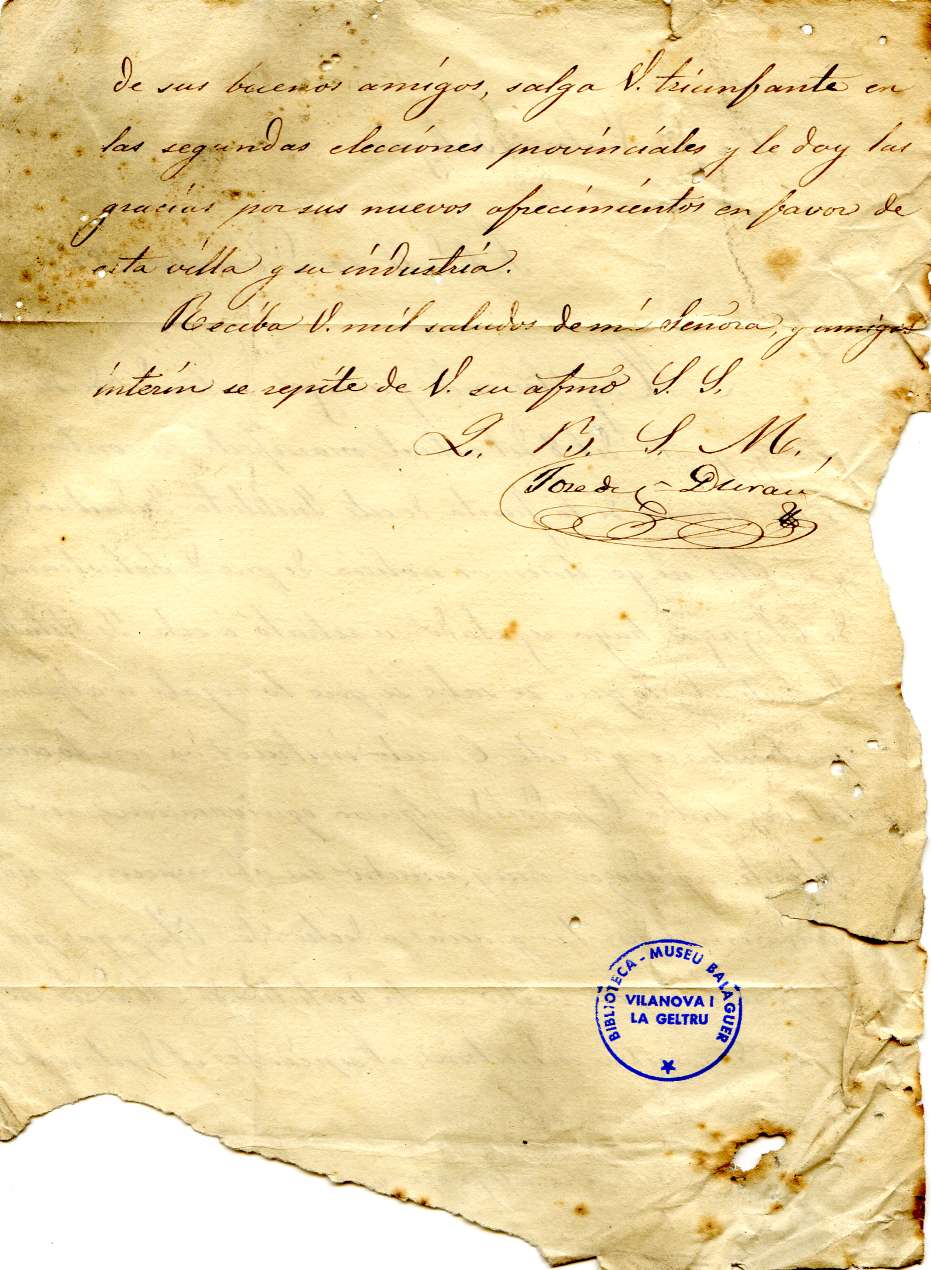 de sus buenos amigos, salga V. triunfante en
las segundas elecciones provinciales y le doy las
gracias por sus nuevos ofrecimientos en favor de
esta villa y su industria.
Reciba V. mil saludos de mi Señora, y amigos
interin se repite de V. su afmo S. S.
Q. B. S. M.,
Jose de Durán
BIBLIOTECA - MUSEU BALAGUER
VILANOVA I
LA GELTRU